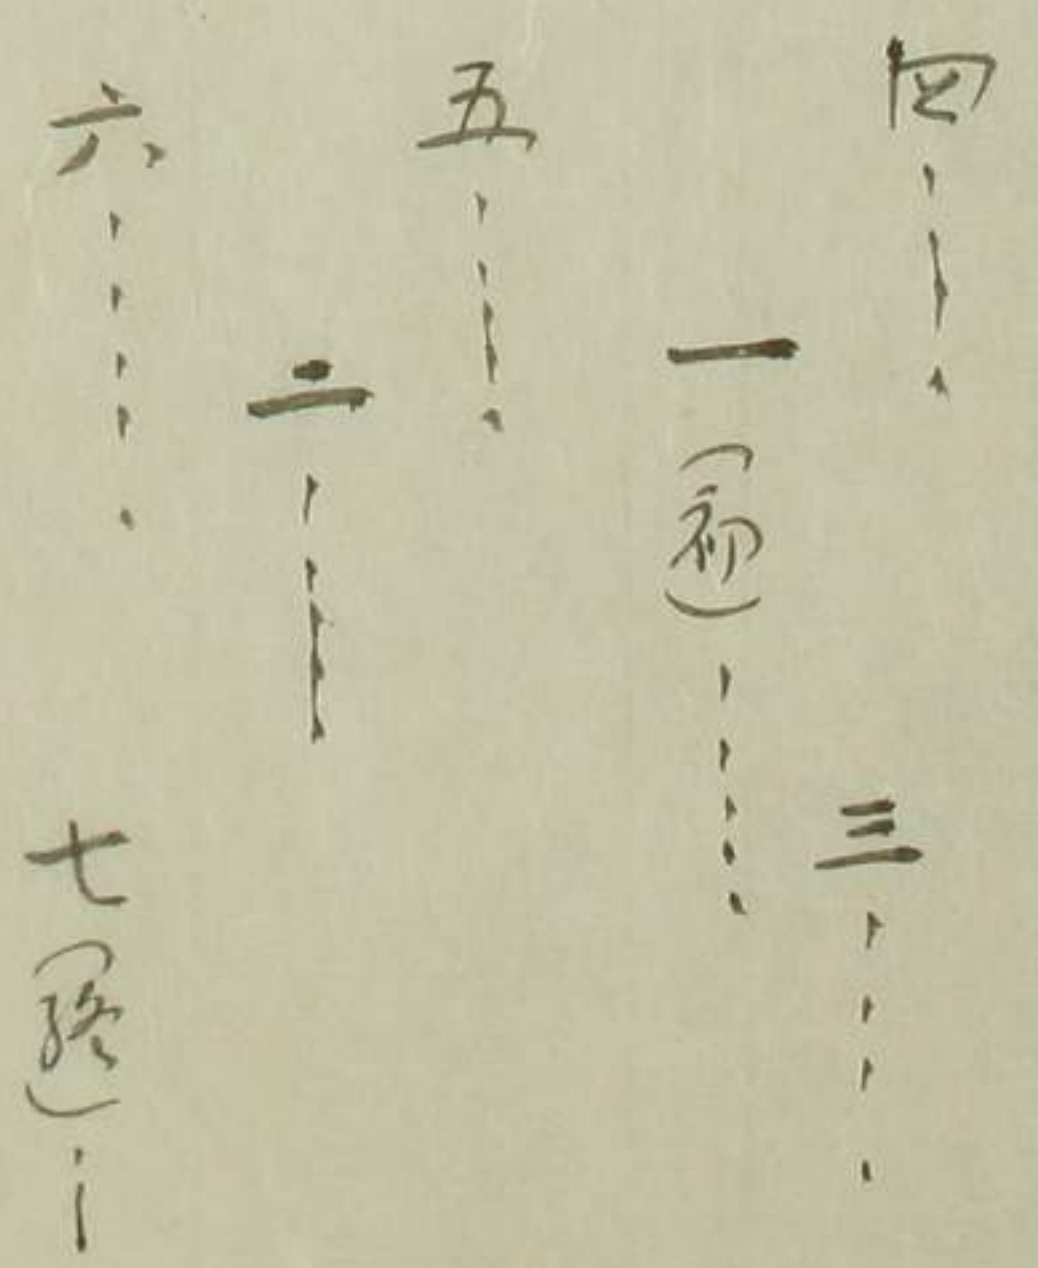 四
三
一(初)
五
二
六
七(終)